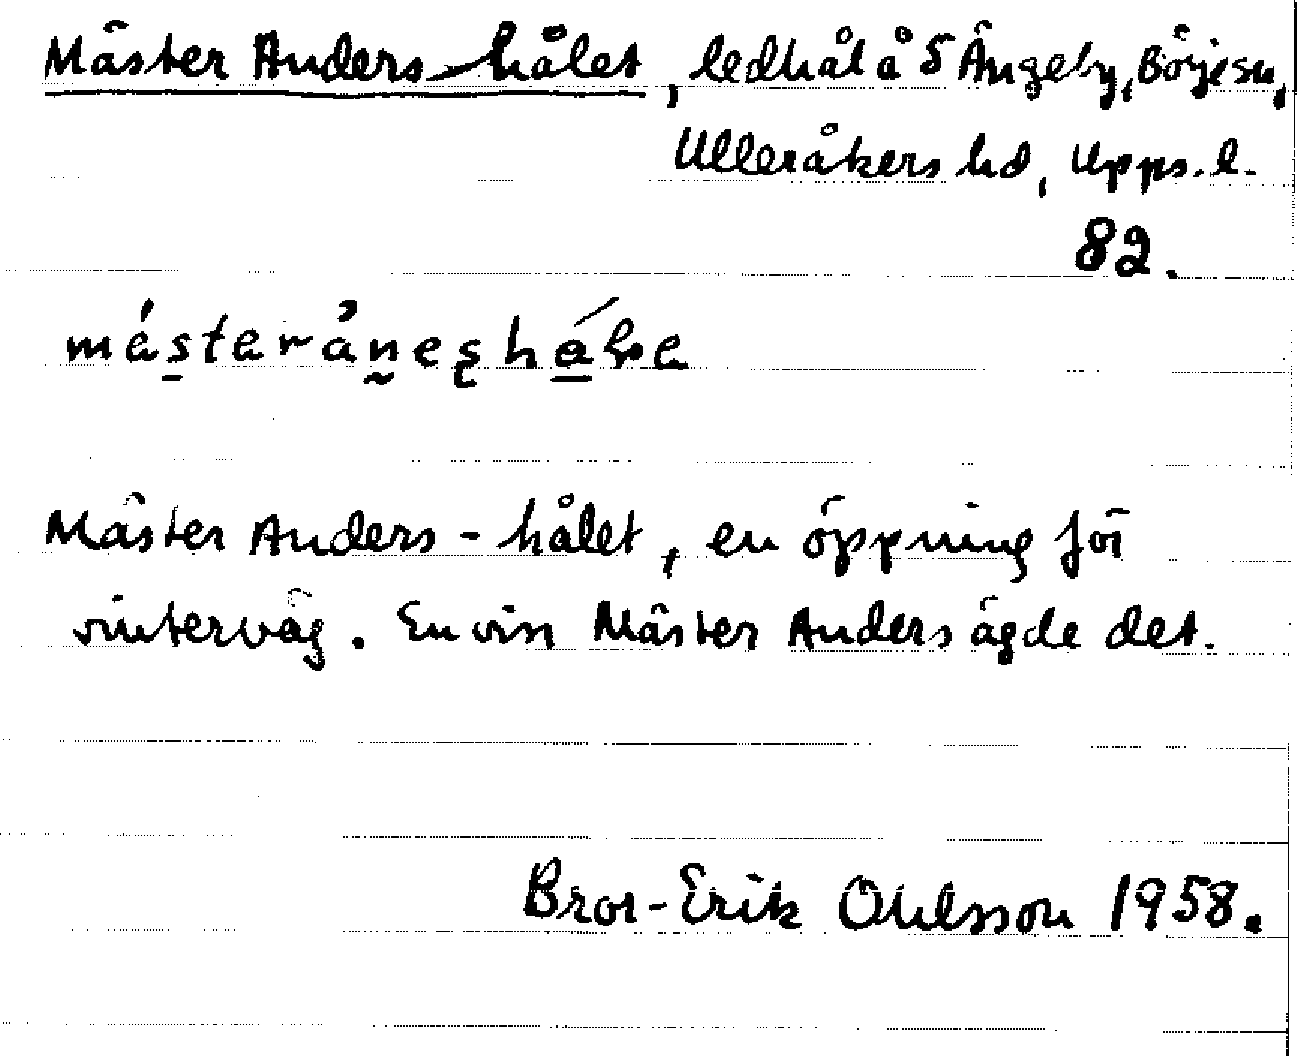 Mäster Anders-hålet, ledhål å S Ängeby, Börje sn,
Ulleråkers hd, Upps. l.
82.
Mäster Anders - hålet, en öppning för
vinterväg. En viss Mäster Anders ägde det.
Bror-Erik Ohlsson 1958.